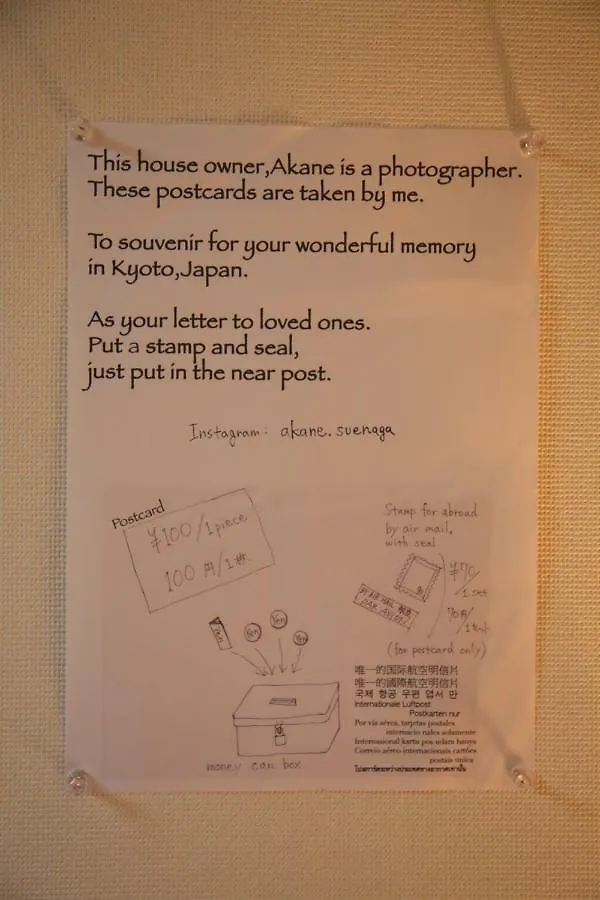 This house owner,Akane is a photographer.
These postcards are taken by me.
To souvenir for your wonderful memory
in Kyoto,Japan.
As your letter to loved ones.
Put a stamp and seal,
just put in the near post.
Instagram: akane.suenaga
Postcard
¥100/1piece
100円/1枚
Stamp for abroad
by air mail,
with seal
¥70/
1set
70円/
BY AIR MAIL 航空
PAR AVION
(for postcard only)
Yen
Yen
Yen
Yen
money can box
唯一的国际航空明信片
唯一的國際航空明信片
국제 항공 우편 엽서 만
Internationale Luftpost
Postkarten nur
Por vía aérea, tarjetas postales
internacio nales solamente
International kartu pos udara hanya
Correio aéreo internacionais cartões
postais única
โปสการ์ดระหว่างประเทศทางอากาศเท่านั้น